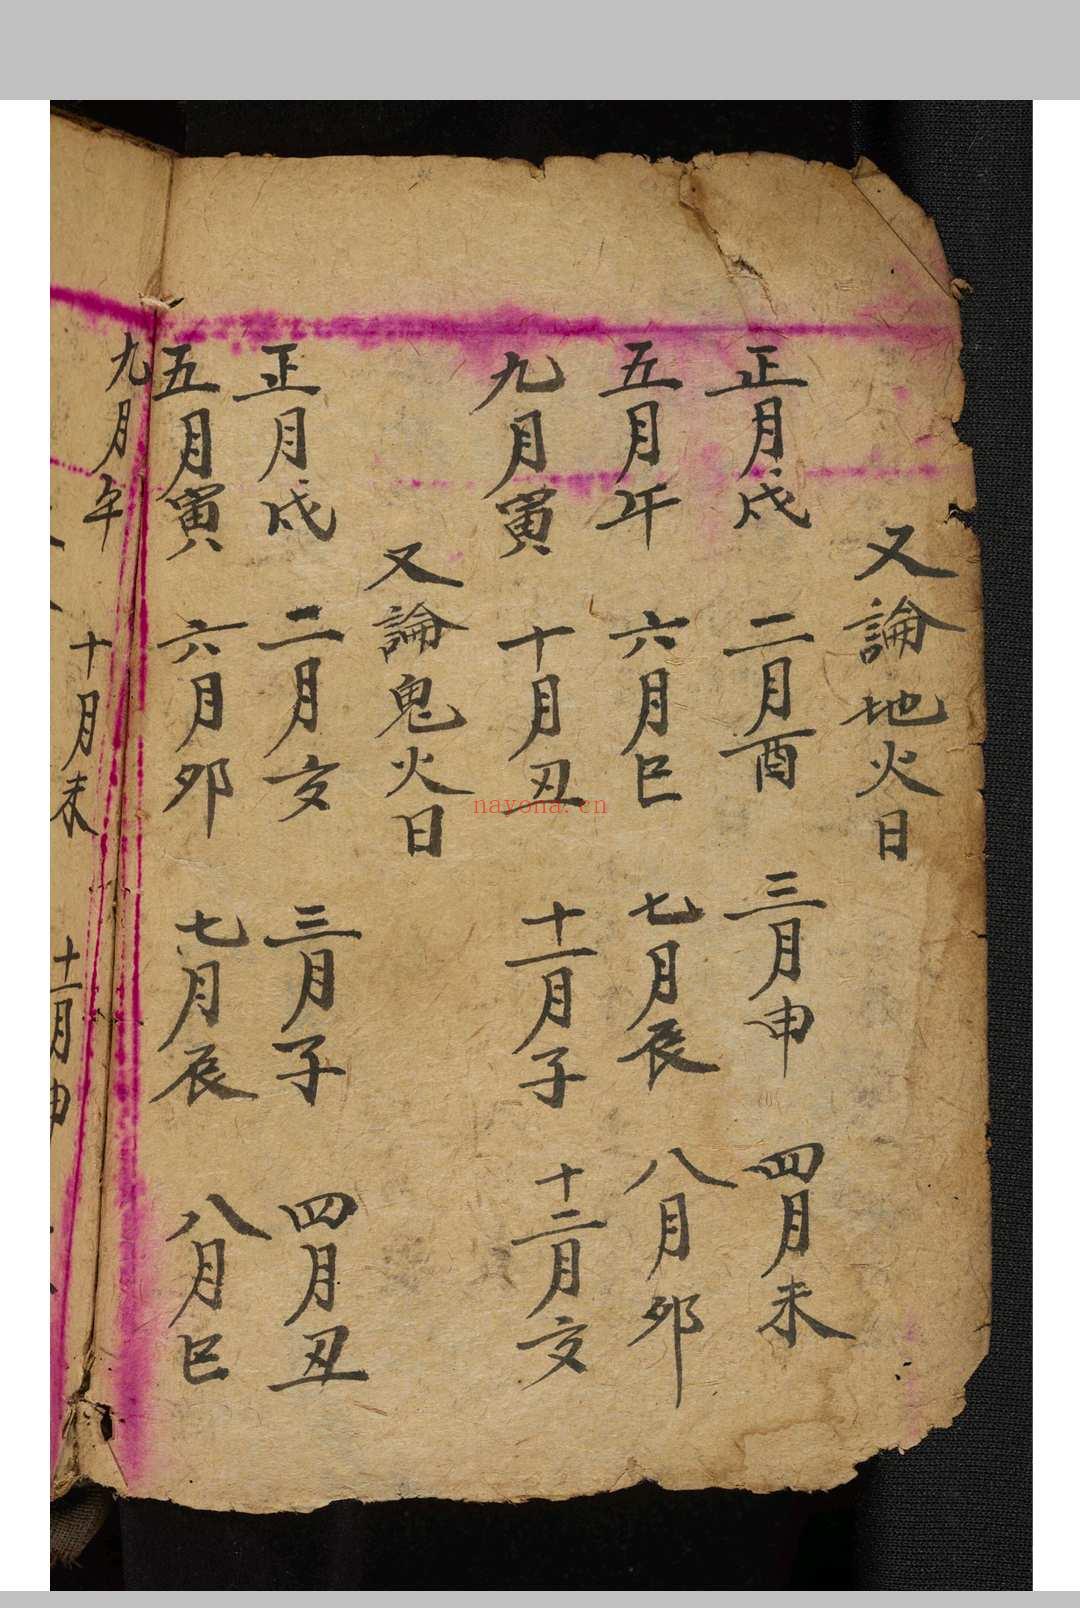 又論地火日
正月戌 二月酉 三月申 四月未
五月午 六月巳 七月辰 八月卯
九月寅 十月丑 十一月子 十二月亥
又論鬼火日
正月戌 二月亥 三月子 四月丑
五月寅 六月卯 七月辰 八月巳
九月午 十月未 十一月申
nayona.cn